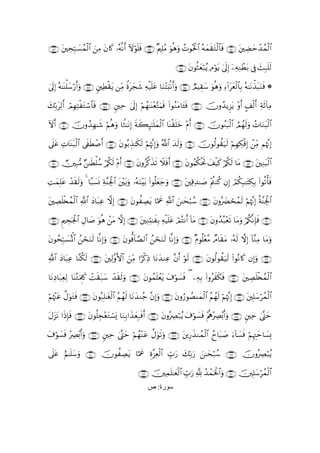 ٱلْمُدْحَضِينَ ۝ فَٱلْتَقَمَهُ ٱلْحُوتُ وَهُوَ مُلِيمٌ ۝ فَلَوْلَآ أَنَّهُۥ كَانَ مِنَ ٱلْمُسَبِّحِينَ ۝
لَلَبِثَ فِى بَطْنِهِۦٓ إِلَىٰ يَوْمِ يُبْعَثُونَ ۝
۞ فَنَبَذْنَـٰهُ بِٱلْعَرَآءِ وَهُوَ سَقِيمٌ ۝ وَأَنۢبَتْنَا عَلَيْهِ شَجَرَةً مِّن يَقْطِينٍ ۝ وَأَرْسَلْنَـٰهُ إِلَىٰ
مِا۟ئَةِ أَلْفٍ أَوْ يَزِيدُونَ ۝ فَـَٔامَنُوا۟ فَمَتَّعْنَـٰهُمْ إِلَىٰ حِينٍ ۝ فَٱسْتَفْتِهِمْ أَلِرَبِّكَ
ٱلْبَنَاتُ وَلَهُمُ ٱلْبَنُونَ ۝ أَمْ خَلَقْنَا ٱلْمَلَـٰٓئِكَةَ إِنَـٰثًا وَهُمْ شَـٰهِدُونَ ۝ أَلَآ
إِنَّهُم مِّنْ إِفْكِهِمْ لَيَقُولُونَ ۝ وَلَدَ ٱللَّهُ وَإِنَّهُمْ لَكَـٰذِبُونَ ۝ أَصْطَفَى ٱلْبَنَاتِ عَلَى
ٱلْبَنِينَ ۝ مَا لَكُمْ كَيْفَ تَحْكُمُونَ ۝ أَفَلَا تَذَكَّرُونَ ۝ أَمْ لَكُمْ سُلْطَـٰنٌ مُّبِينٌ ۝
فَأْتُوا۟ بِكِتَـٰبِكُمْ إِن كُنتُمْ صَـٰدِقِينَ ۝ وَجَعَلُوا۟ بَيْنَهُۥ وَبَيْنَ ٱلْجِنَّةِ نَسَبًا ۚ وَلَقَدْ عَلِمَتِ
ٱلْجِنَّةُ إِنَّهُمْ لَمُحْضَرُونَ ۝ سُبْحَـٰنَ ٱللَّهِ عَمَّا يَصِفُونَ ۝ إِلَّا عِبَادَ ٱللَّهِ ٱلْمُخْلَصِينَ ۝
فَإِنَّكُمْ وَمَا تَعْبُدُونَ ۝ مَآ أَنتُمْ عَلَيْهِ بِفَـٰتِنِينَ ۝ إِلَّا مَنْ هُوَ صَالِ ٱلْجَحِيمِ ۝
وَمَا مِنَّآ إِلَّا لَهُۥ مَقَامٌ مَّعْلُومٌ ۝ وَإِنَّا لَنَحْنُ ٱلصَّآفُّونَ ۝ وَإِنَّا لَنَحْنُ ٱلْمُسَبِّحُونَ
۝ وَإِن كَانُوا۟ لَيَقُولُونَ ۝ لَوْ أَنَّ عِندَنَا ذِكْرًا مِّنَ ٱلْأَوَّلِينَ ۝ لَكُنَّا عِبَادَ ٱللَّهِ
ٱلْمُخْلَصِينَ ۝ فَكَفَرُوا۟ بِهِۦ ۖ فَسَوْفَ يَعْلَمُونَ ۝ وَلَقَدْ سَبَقَتْ كَلِمَتُنَا لِعِبَادِنَا
ٱلْمُرْسَلِينَ ۝ إِنَّهُمْ لَهُمُ ٱلْمَنصُورُونَ ۝ وَإِنَّ جُندَنَا لَهُمُ ٱلْغَـٰلِبُونَ ۝ فَتَوَلَّ عَنْهُمْ
حَتَّىٰ حِينٍ ۝ وَأَبْصِرْهُمْ فَسَوْفَ يُبْصِرُونَ ۝ أَفَبِعَذَابِنَا يَسْتَعْجِلُونَ ۝ فَإِذَا نَزَلَ
بِسَاحَتِهِمْ فَسَآءَ صَبَاحُ ٱلْمُنذَرِينَ ۝ وَتَوَلَّ عَنْهُمْ حَتَّىٰ حِينٍ ۝ وَأَبْصِرْ فَسَوْفَ
يُبْصِرُونَ ۝ سُبْحَـٰنَ رَبِّكَ رَبِّ ٱلْعِزَّةِ عَمَّا يَصِفُونَ ۝ وَسَلَـٰمٌ عَلَى
ٱلْمُرْسَلِينَ ۝ وَٱلْحَمْدُ لِلَّهِ رَبِّ ٱلْعَـٰلَمِينَ ۝
سورة: ص